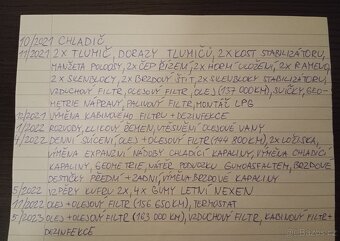 10/2021 CHLADIČ
11/2021 2x TLUMIČ, DORAZY TLUMIČŮ, 2x KOST STABILIZÁTORU,
MANŽETA POLOOSY, 2x ČEP ŘÍZENÍ, 2x HORNÍ ULOŽENÍ, 2x RAMENO
2x SILENBLOKY, 2x BRZDOVÝ ŠTÍT, 2x SILENBLOKY STABILIZÁTORU,
VZDUCHOVÝ FILTR, OLEJOVÝ FILTR, OLEJ (137 000KM), SVÍČKY, GEO-
METRIE NÁPRAVY, PALIVOVÝ FILTR, MONTÁŽ LPG
12/2021 VÝMĚNA KABINOVÉHO FILTRU + DEZINFEKCE
1/2022 ROZVODY, KLÍNOVÝ ŘEMEN, UTĚSNĚNÍ OLEJOVÉ VANY
4/2022 DENNÍ SVÍCENÍ, OLEJ + OLEJOVÝ FILTR (144 800KM), 2x LOŽISKA,
VÝMĚNA EXPANZNÍ NÁDOBY CHLADÍCÍ KAPALINY, VÝMĚNA CHLADÍCÍ
KAPALINY, GEOMETRIE, NÁTĚR PODVOZKU GUMOASFALTEM, BRZDOVÉ
DESTIČKY PŘEDNÍ + ZADNÍ, VÝMĚNA BRZDOVÉ KAPALINY
5/2022 VZPĚRY KUFRU 2x, 4x GUMY LETNÍ NEXEN
11/2022 OLEJ + OLEJOVÝ FILTR (156 650KM), TERMOSTAT
5/2023 OLEJ + OLEJOVÝ FILTR (163 000KM), VZDUCHOVÝ FILTR, KABINOVÝ FILTR +
DEZINFEKCE